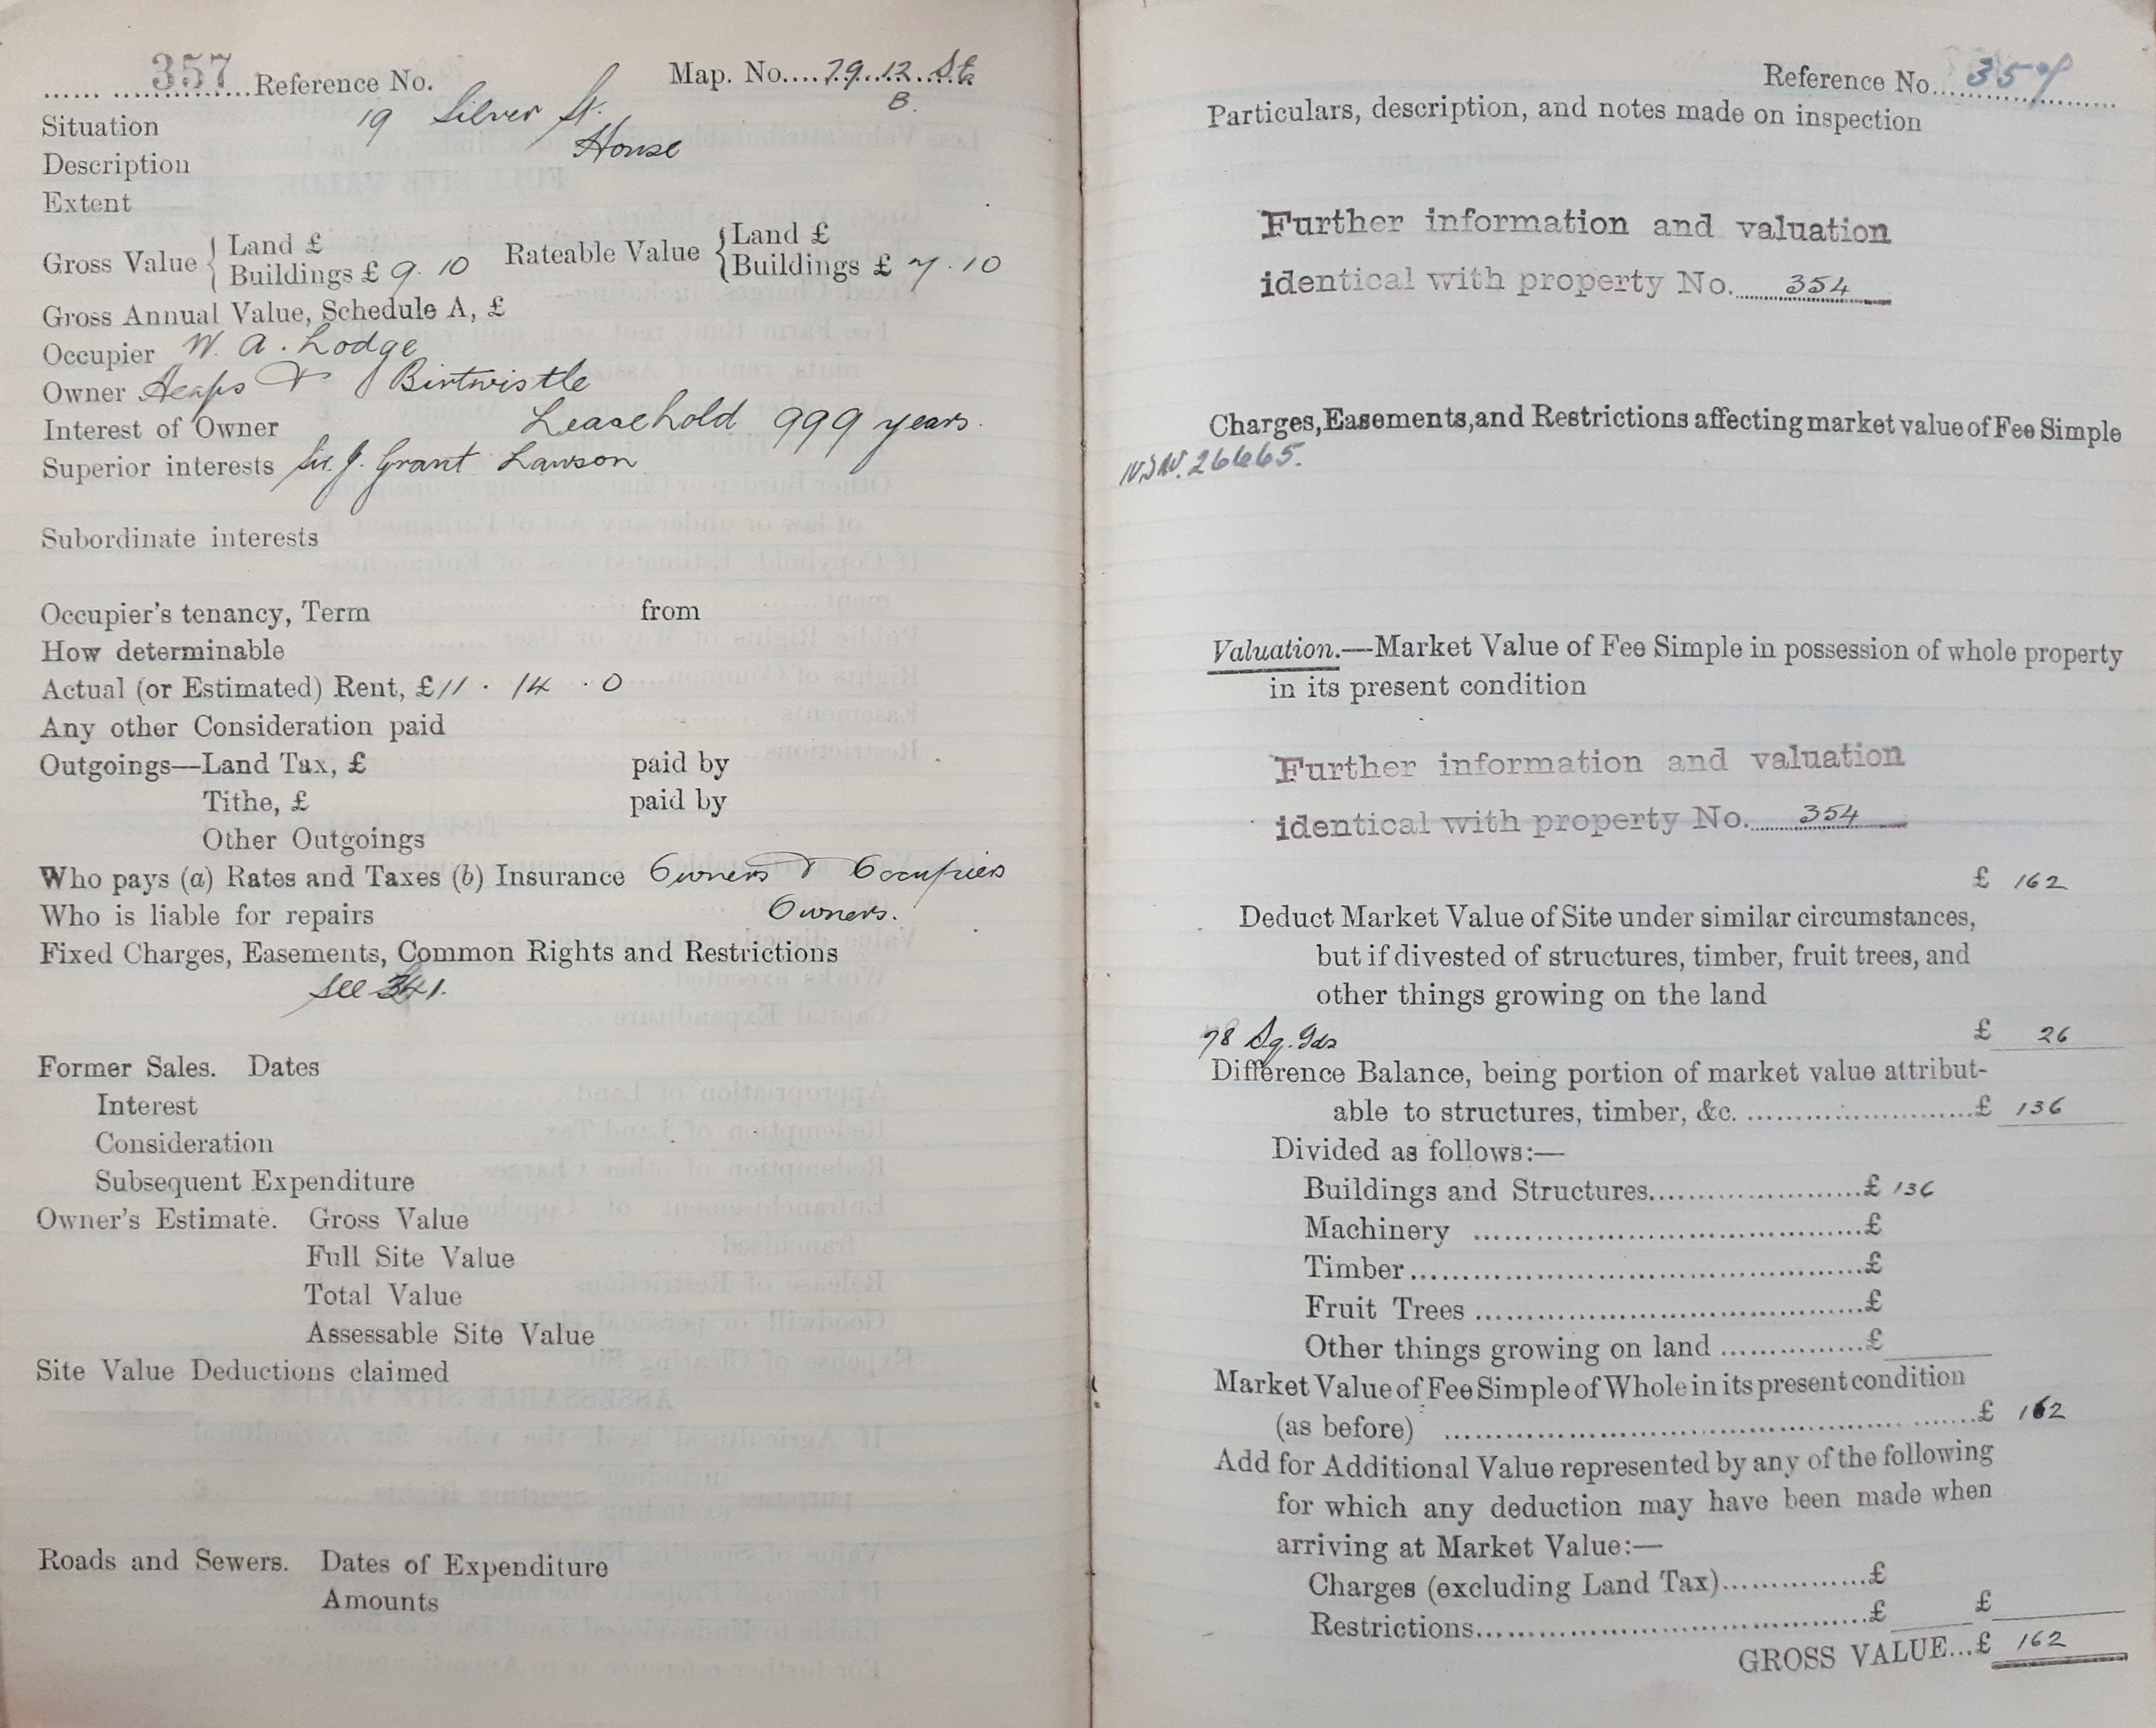 357 Reference No. Map. No....79.12. St.
B.
Situation 19 Silver St.
Description House
Extent
Gross Value { Land £ Buildings £ 9.10 Rateable Value { Land £ Buildings £ 7.10
Gross Annual Value, Schedule A, £
Occupier W. A. Lodge
Owner Heaps & Birtwistle
Interest of Owner Leasehold 999 years.
Superior interests Sir. J. Grant Lawson
Subordinate interests
Occupier's tenancy, Term from
How determinable
Actual (or Estimated) Rent, £11 . 14 . 0
Any other Consideration paid
Outgoings—Land Tax, £ paid by
Tithe, £ paid by
Other Outgoings
Who pays (a) Rates and Taxes (b) Insurance Owners & Occupiers
Who is liable for repairs Owners.
Fixed Charges, Easements, Common Rights and Restrictions
See 341.
Former Sales. Dates
Interest
Consideration
Subsequent Expenditure
Owner's Estimate. Gross Value
Full Site Value
Total Value
Assessable Site Value
Site Value Deductions claimed
Roads and Sewers. Dates of Expenditure
Amounts
Reference No. 357
Particulars, description, and notes made on inspection
Further information and valuation
identical with property No. 354
Charges, Easements, and Restrictions affecting market value of Fee Simple
26665.
Valuation.—Market Value of Fee Simple in possession of whole property
in its present condition
Further information and valuation
identical with property No. 354
£ 162
Deduct Market Value of Site under similar circumstances,
but if divested of structures, timber, fruit trees, and
other things growing on the land
78 Sq. Yds £ 26
Difference Balance, being portion of market value attribut-
able to structures, timber, &c. £ 136
Divided as follows:—
Buildings and Structures £ 136
Machinery £
Timber £
Fruit Trees £
Other things growing on land £
Market Value of Fee Simple of Whole in its present condition
(as before) £ 162
Add for Additional Value represented by any of the following
for which any deduction may have been made when
arriving at Market Value:—
Charges (excluding Land Tax) £
Restrictions £ £
GROSS VALUE...£ 162